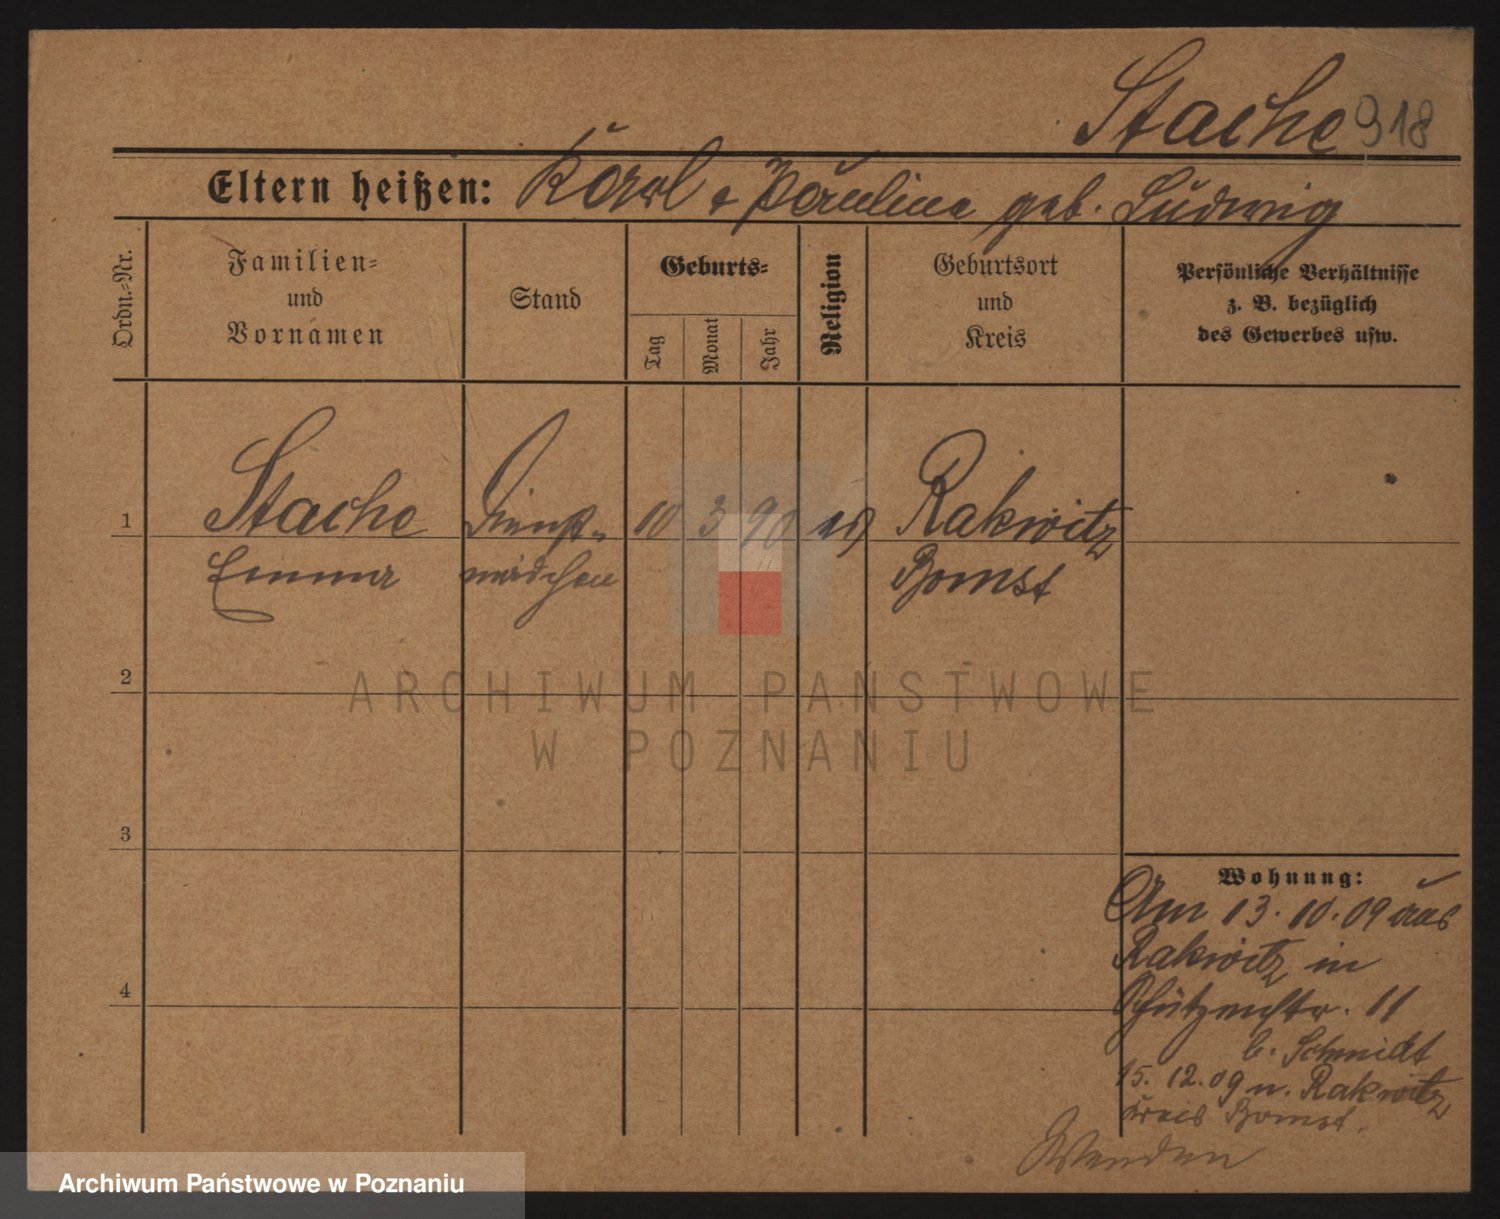 Stache 918
Eltern heißen: Karl + Pauline geb. Ludwig
Ordn.-Nr.
Familien-
und
Vornamen
Stand
Geburts-
Tag
Monat
Jahr
Religion
Geburtsort
und
Kreis
Persönliche Verhältnisse
z. B. bezüglich
des Gewerbes usw.
1 Stache Dienst- 10 3 90 ev Rakwitz
Emma mädchen Bomst
2
3
4
Wohnung:
Am 13.10.09 aus
Rakwitz in
Schützenstr. 11
b. Schmidt
15.12.09 n. Rakwitz
Kreis Bomst.
Wenden
ARCHIWUM PAŃSTWOWE
W POZNANIU
Archiwum Państwowe w Poznaniu